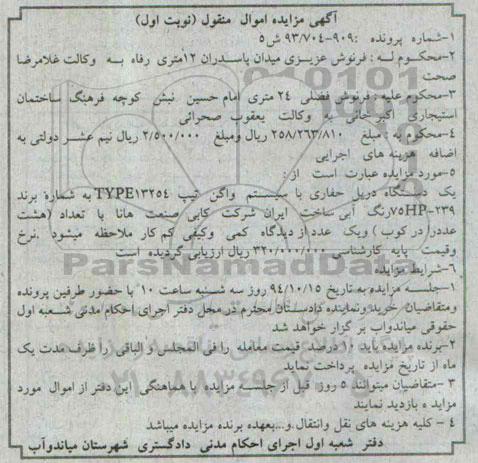 آگهی مزایده اموال منقول (نوبت اول)
۱-شماره پرونده :۹۰۹-۹۳/۷۰۴ ش۵
۲-محکوم له : فرنوش عزیزی میدان پاسدران ۱۲متری رفاه به وکالت غلامرضا
صحت
۳-محکوم علیه: فرنوش فضلی ۲۴ متری امام حسین نبش کوچه فرهنگ ساختمان
استیجاری اکبرخانی به وکالت یعقوب صحرائی
۴-محکوم به : مبلغ ۲۵۸/۲۶۳/۸۱۰ ریال ومبلغ ۲/۵۰۰/۰۰۰ ریال نیم عشر دولتی به
اضافه هزینه های اجرایی
۵-مورد مزایده عبارت است از :
یک دستگاه دریل حفاری با سیستم واگن تیپ TYPE۱۳۲۵۴ به شماره برند
۷۵HP-۲۳۹رنگ آبی ساخت ایران شرکت کابی صنعت هانا با تعداد (هشت
عدددرا در کوب ) ویک عدد از دیدگاه کمی وکیفی کم کار ملاحظه میشود .نرخ
وقیمت پایه کارشناسی ۳۲۰/۰۰۰/۰۰۰ ریال ارزیابی گردیده است
۶-شرایط مزایده
۱-جلسه مزایده به تاریخ ۹۴/۱۰/۱۵ روز سه شنبه ساعت ۱۰ با حضور طرفین پرونده
ومتقاضیان خرید ونماینده دادستان محترم در محل دفتر اجرای احکام مدنی شعبه اول
حقوقی میاندواب بر گزار خواهد شد
۲-برنده مزایده باید ۱۰ درصد قیمت معامله را فی المجلس و الباقی را ظرف مدت یک
ماه از تاریخ مزایده پرداخت نماید
۳-متقاضیان میتوانند ۵ روز قبل از جلسه مزایده با هماهنگی این دفتر از اموال مورد
مزایده بازدید نمایند
۴- کلیه هزینه های نقل وانتقال.و...بعهده برنده مزایده میباشد
دفتر شعبه اول اجرای احکام مدنی دادگستری شهرستان میاندوآب
ParsNamadData